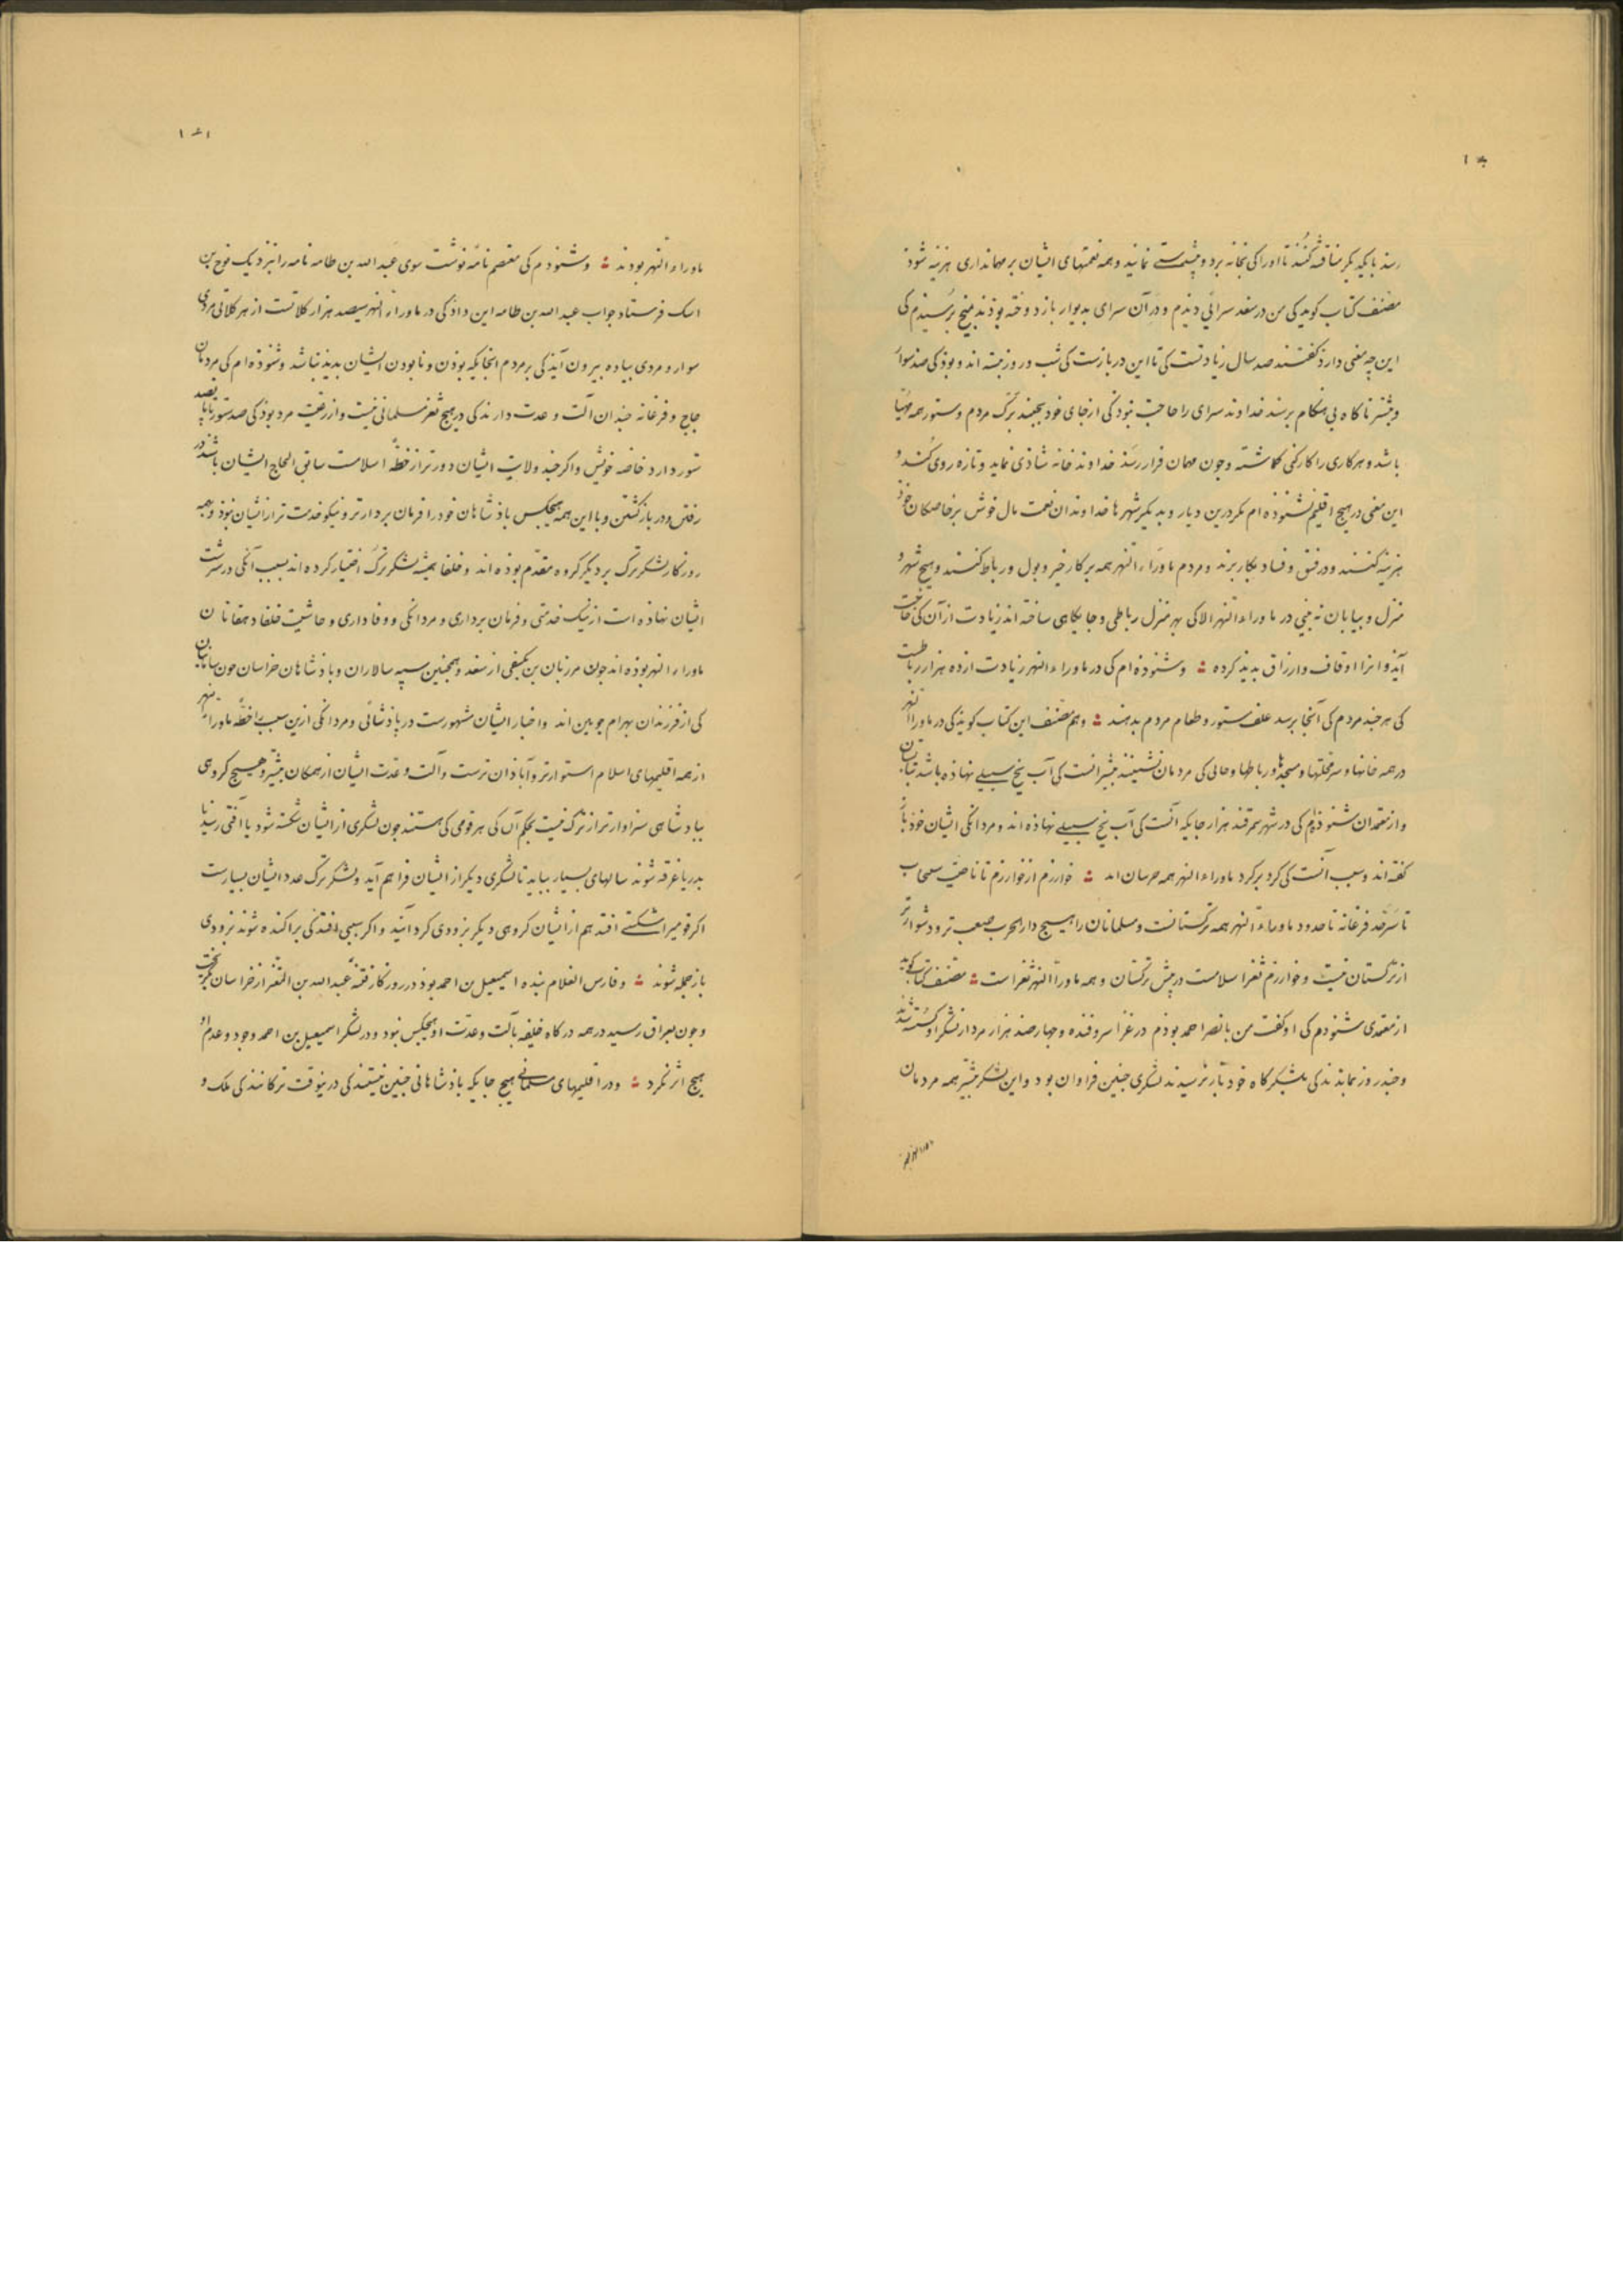 رسذ با یکدیگر مناقشه کنند تا او را کی بخانه برد و بیشتر نمایند و همه نعمتهای ایشان بر مهمانداری هزینه شوذ
مصنف کتاب کوید کی من در سغد سرائی دیذم و در آن سرای بدیوار باز دوخته بوذند بمیخ برسیذم کی
این چه معنی دارذ کفتند صد سال زیادتست کی تا این در بازست کی شب و روز نبسته اند و بوذ کی صذ سوار
و بیشتر ناکاه بی هنکام برسند خداوند سرای را حاجت نبوذ کی از جای خود بجنبد برک مردم و ستور همه مهیا
باشد و هر کاری را کارکنی کماشته و جون مهمان قرار رسذ خداوند خانه شاذی نماید و تازه روی کند و
این معنی در هیج اقلیم نشنوذه ام مکر درین دیار و بدیکر شهرها خداوندان نعمت مال خوش بر خاصکان خوذ
هزینه کنند و در فسق و فساد بکار برند و مردم ماوراء النهر همه بر کار خیر و پول و رباط کنند و هیج شهر و
منزل و بیابان نه بینی در ماوراء النهر الا کی بهر منزل رباطی و جایکاهی ساخته اند زیادت از آن کی حاجت
آید و انرا اوقاف و ارزاق بدید کرده ؞ و شنوذه ام کی در ماوراء النهر زیادت از ده هزار رباطست
کی هر جند مردم کی آنجا برسد علف ستور و طعام مردم بدهند ؞ و هم مصنف این کتاب کویذ کی در ماورا النهر
در همه خانها و سر محلتها و مسجدها و رباطها و جائی کی مردمان نشینند بیشتر انست کی آب یخ بسبیل نهاذه باشد تابستان
و از معتمدان شنوذم کی در شهر سمرقند هزار جایکه آنست کی آب یخ بسبیل نهاذه اند و مردانکی ایشان خوذ باز
کفته اند و سبب آنست کی کرد بر کرد ماوراء النهر همه خراسان اند ؞ خوارزم از خوارزم تا ناحیت سبیجاب
تا سرحد فرغانه تا حدود ماوراء النهر همه ترکستانست و مسلمانان را هیج دار الحرب صعب تر و دشوارتر
از ترکستان نیست و خوارزم ثغر اسلامست در پیش ترکستان و همه ماورا النهر ثغر است ؞ مصنف کتاب کوید
از معتمدی شنوذم کی او کفت من با نصر احمد بوذم در غزا سروفنده و جهارصد هزار مرد از لشکر او کسسته شدند
و جند روز نماندند کی بلشکرکاه خود باز نرسیدند لشکری جنین فراوان بود و این لشکر بیشتر همه مردمان
ماوراء النهر بودند ؞ و شنوذم کی معتصم نامه نوشت سوی عبد الله بن طاهر نامه را نزدیک نوح بن
اسد فرستاد جواب عبد الله بن طاهر این داذ کی در ماوراء النهر سیصد هزار کلاتست از هر کلاتی مردی
سوار و مردی پیاده بیرون آید کی بر مردم آنجایکه بوذن و نابودن ایشان بدید نباشد و شنوذه ام کی مردمان
جاج و فرغانه جندان آلت و عدت دارند کی در هیج ثغر مسلمانی نیست و از رعیت مرد بوذ کی صد ستور تا پانصد
ستور دارد خاصه خویش و اکر جند ولایت ایشان دورتر از خطه اسلامست سابق الحاج ایشان باشند در
رفتن و در باز کشتن و با این همه هیجکس باذشاهان خود را فرمان بردارتر و نیکو خدمت تر از ایشان نبوذ و همه
روزکار لشکر ترک بر دیکر کروه مقدم بوذه اند و خلفا همیشه لشکر ترک اختیار کرده اند بسبب آنکی در سرشت
ایشان نهاذه است از نیک خدمتی و فرمان برداری و مردانکی و وفاداری و حاشیت خلفا دهقانان
ماوراء النهر بوذه اند جون مرزبان بن کیفی از سغد و همچنین سپه سالاران و باذشاهان خراسان جون سامانیان
کی از فرزندان بهرام جوبین اند و اخبار ایشان مشهورست در باذشائی و مردانکی ازین سبب را خطه ماوراء النهر
از همه اقلیمهای اسلام استوارتر و آباذان ترست و آلت و عدت ایشان از همکان بیشتر و هیج کروهی
بپادشاهی سزاوارتر از ترک نیست بحکم آن کی هر قومی کی هستند جون لشکری از ایشان شکسته شود یا آفتی رسد یا
بدریا غرقه شوند سالهای بسیار بباید تا لشکری دیکر از ایشان فراهم آید و لشکر ترک عدد ایشان بسیارست
اکر قومیرا شکستی افتد هم از ایشان کروهی دیکر بزودی کرد آیند و اکر سببی افتد کی براکنده شوند بزودی
باز جمله شوند ؞ و فارس الغلام بنده اسمعیل بن احمد بوذ در روزکار فتنه عبد الله بن المعتز از خراسان بکریخت
و جون بعراق رسید در همه درکاه خلیفه بآلت و عدت او هیجکس نبود و در لشکر اسمعیل بن احمد وجود و عدم او
هیج اثر نکرد ؞ و در اقلیمهای مسلمانی هیج جایکه باذشاهانی جنین نیستند کی درینوقت ترکانند کی ملک و